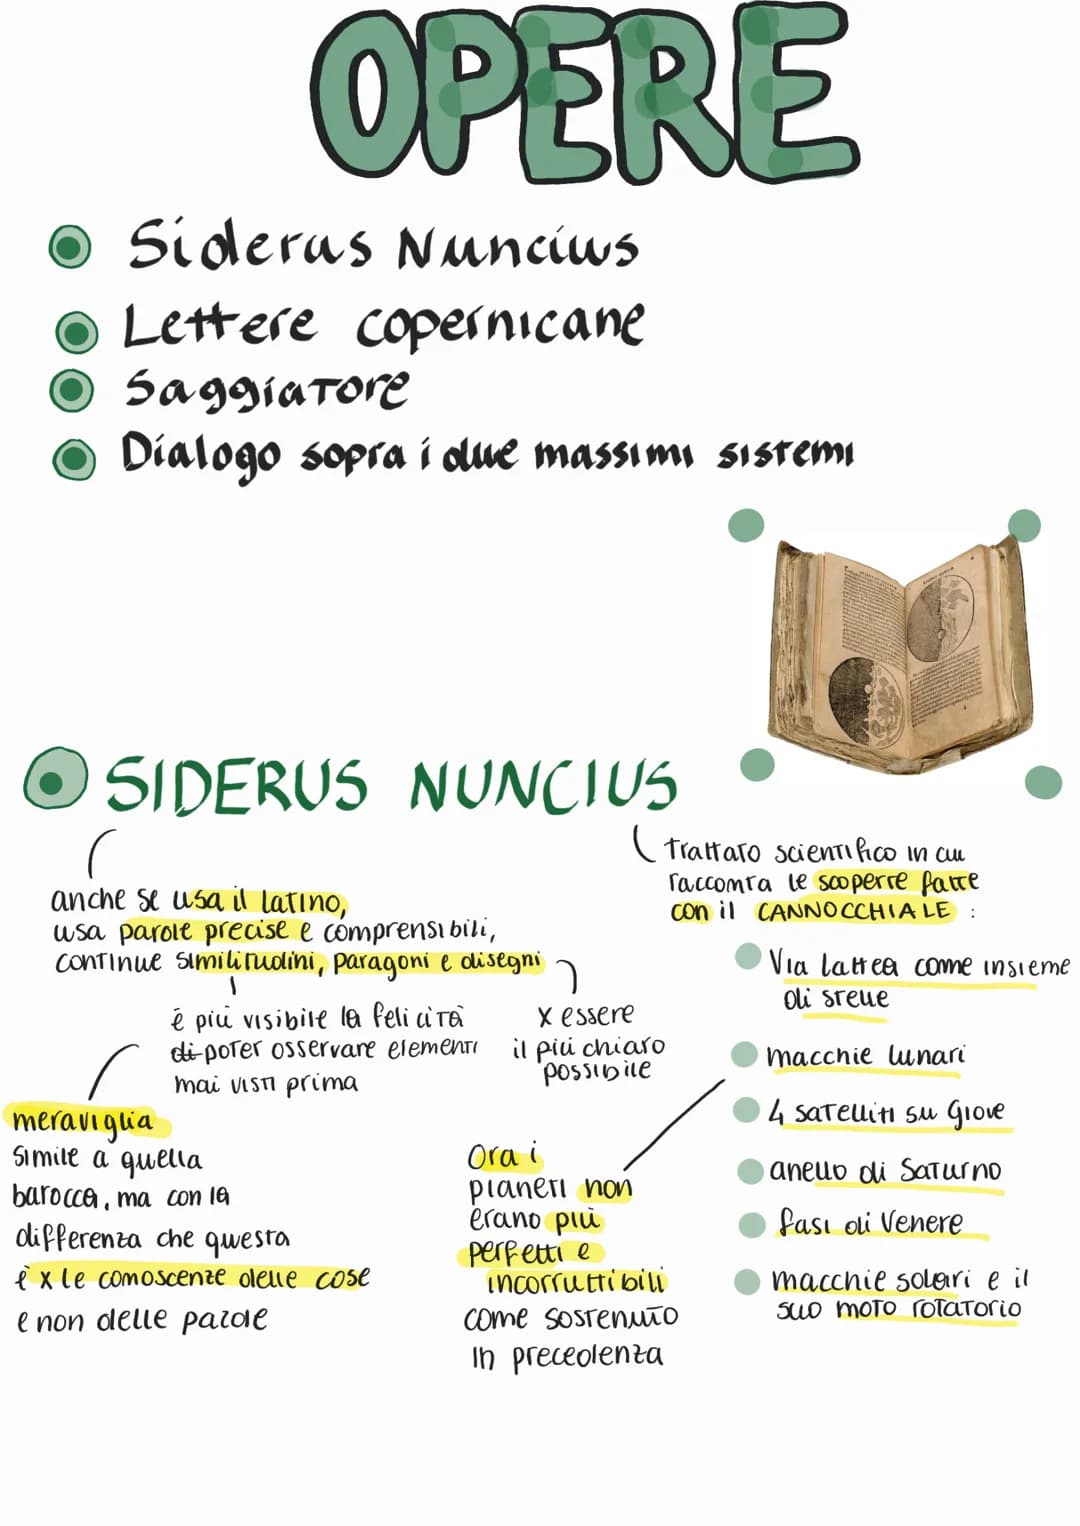 OPERE
Siderus Nuncius
Lettere copernicane
Saggiatore
Dialogo sopra i due massimi sistemi
SIDERUS NUNCIUS
anche se usa il latino,
usa parole precise e comprensibili,
continue similitudini, paragoni e disegni
è più visibile la felicità
di poter osservare elementi
mai visti prima
x essere
il più chiaro
possibile
meraviglia
simile a quella
barocca, ma con la
differenza che questa
è x le comoscenze delle cose
e non delle parole
Trattato scientifico in cui
racconta le scoperte fatte
con il CANNOCCHIALE :
Via lattea come insieme
di stelle
macchie lunari
4 satelliti su Giove
anello di Saturno
fasi di Venere
macchie solari e il
suo moto rotatorio
Ora i
pianeti non
erano più
perfetti e
incorruttibili
come sostenuto
in precedenza